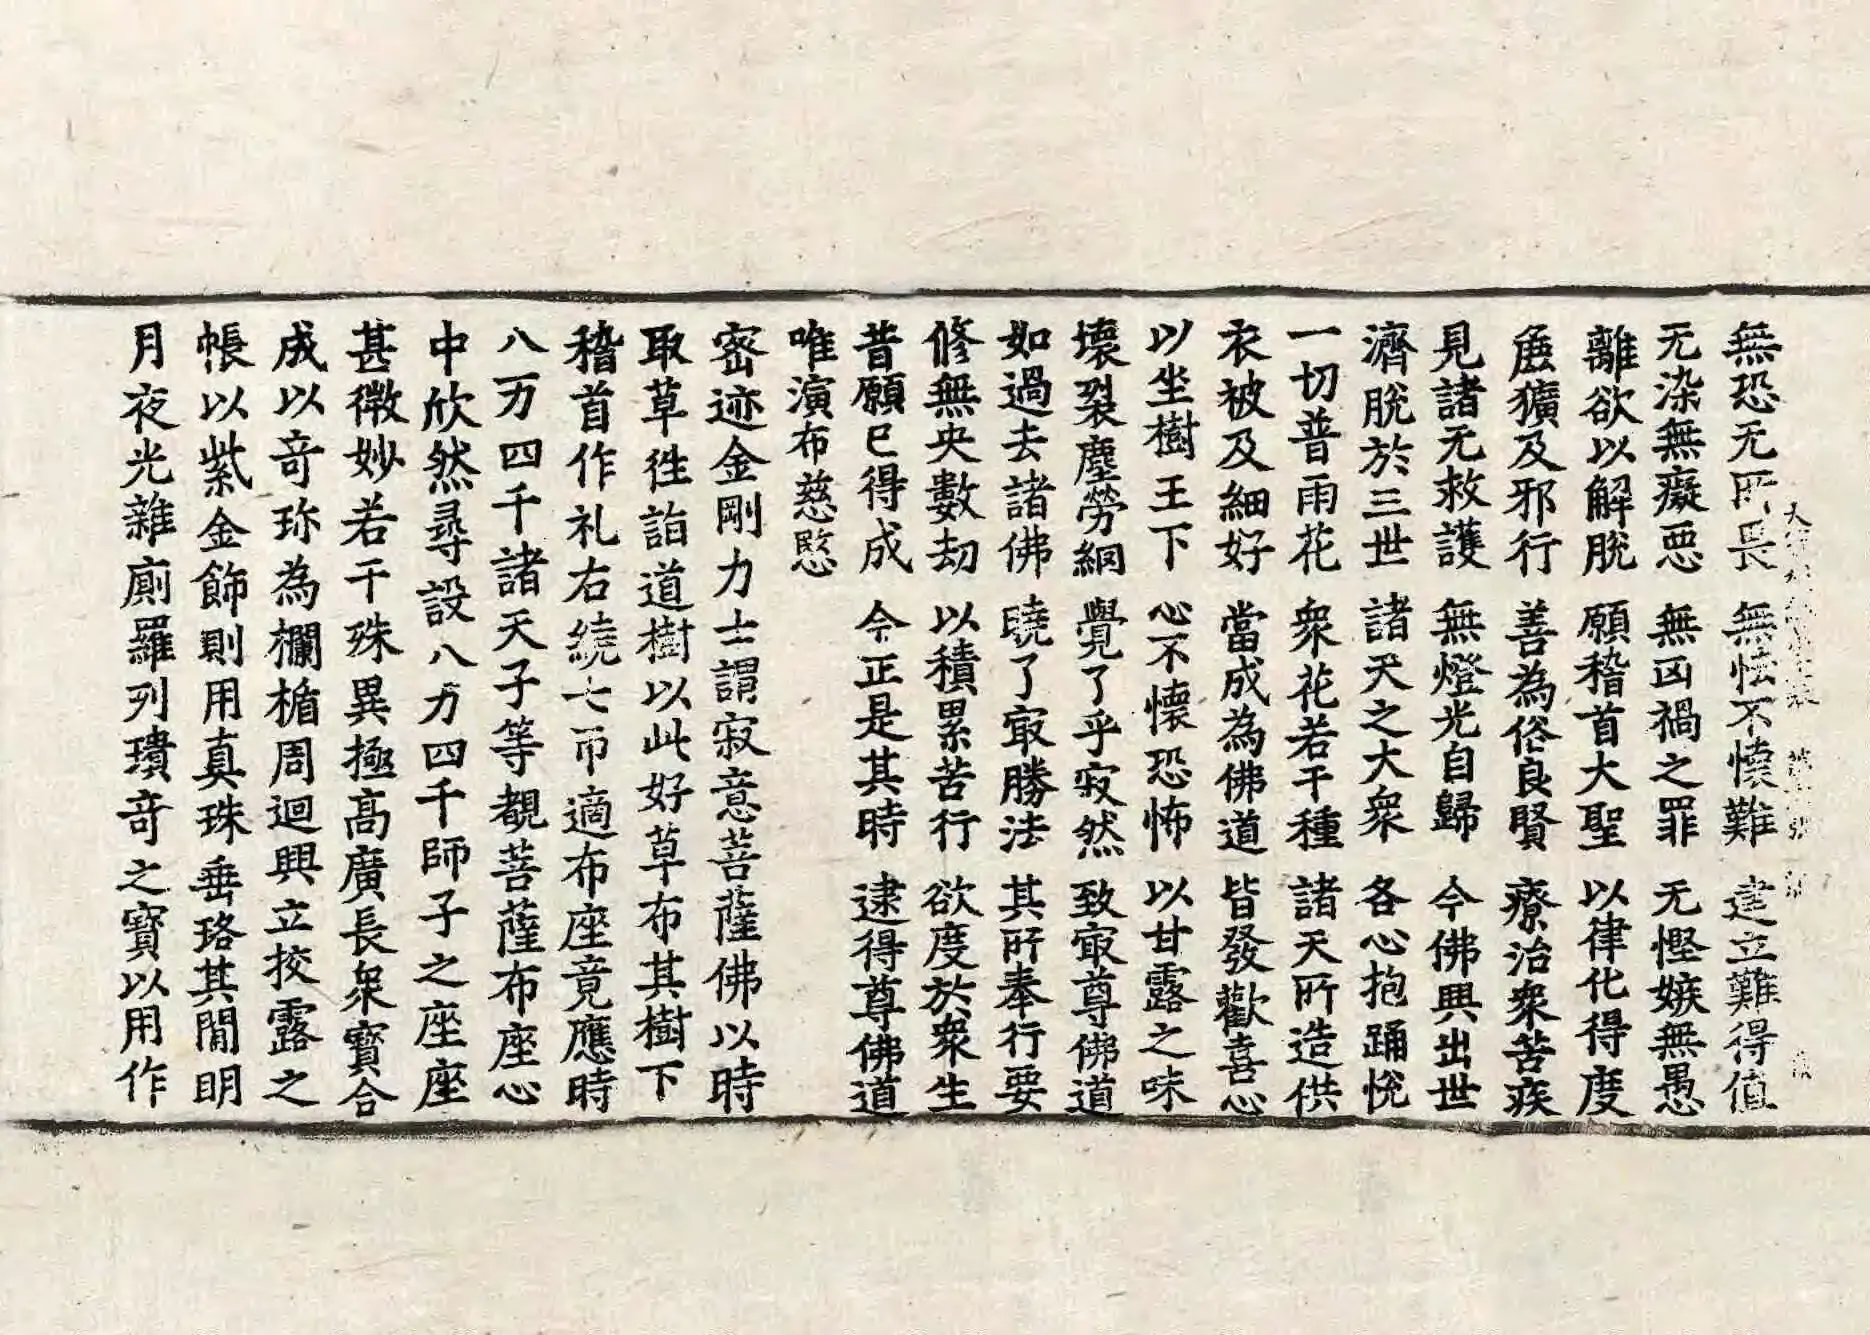 無恐无所畏 無怯不懷難 建立難得值
无染無癡恶 無凶禍之罪 无慳嫉無愚
離欲以解脫 願稽首大聖 以律化得度
麁獷及邪行 善為俗良賢 療治衆苦疾
見諸无救護 無燈光自歸 今佛興出世
濟脫於三世 諸天之大衆 各心抱踊悅
一切普雨花 衆花若干種 諸天所造供
衣被及細好 當成為佛道 皆發歡喜心
以坐樹王下 心不懷恐怖 以甘露之味
壞裂塵勞網 覺了乎寂然 致㝡尊佛道
如過去諸佛 曉了㝡勝法 其所奉行要
修無央數劫 以積累苦行 欲度於衆生
昔願已得成 今正是其時 逮得尊佛道
唯演布慈愍
密迹金剛力士謂寂意菩薩佛以時
取草徃詣道樹以此好草布其樹下
稽首作礼右繞七帀適布座竟應時
八万四千諸天子等覩菩薩布座心
中欣然尋設八万四千師子之座座
甚微妙若干殊異極高廣長衆寳合
成以竒珎為欄楯周迴興立挍露之
帳以紫金飾則用真珠垂珞其閒明
月夜光雜廁羅列瓌竒之寳以用作